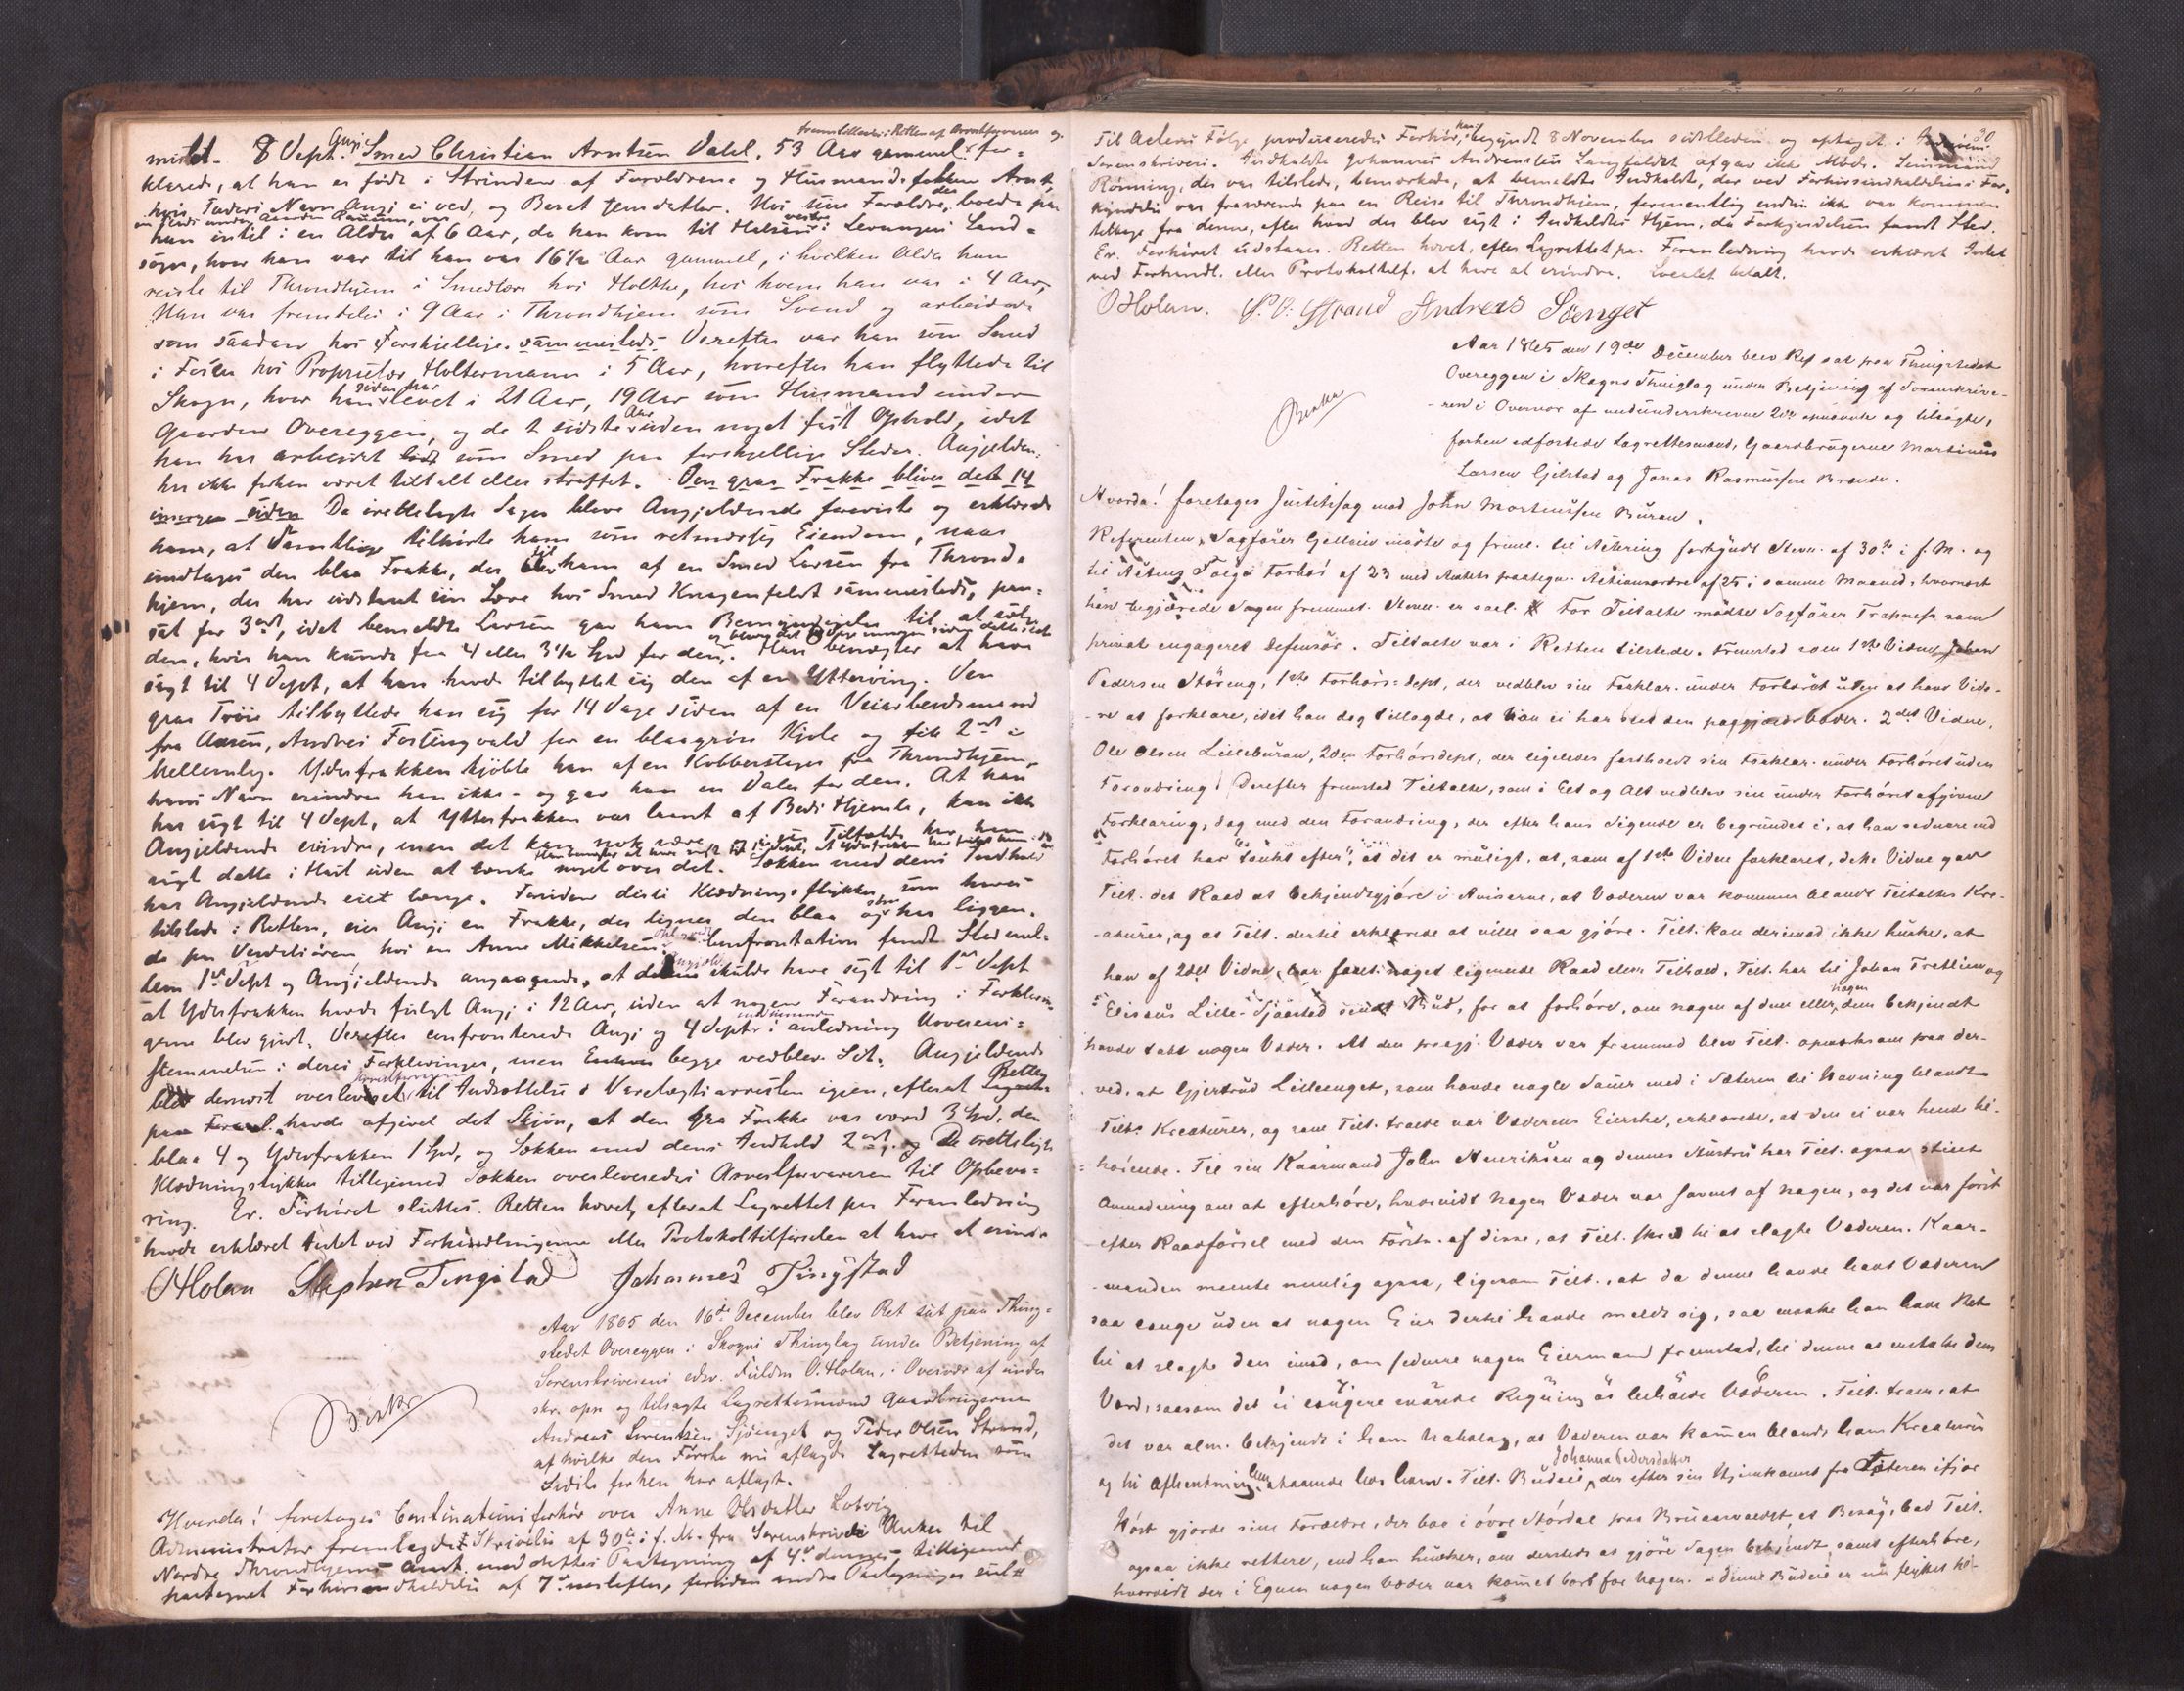 fremstilledes i Retten af Arrestforvareren og
mislet. 8 Dept. Angj. Smed Christian Arntsen Dahl, 53 Aar gammel, for-
klarede, at han er født i Strinden af Forældrene og Husmandsfolkene Arnt,
hvis Faders Navn Angj. ei ved, og Beret Jensdatter. Hos sine Forældre, der boede paa
en Plads under Gaarden Ranum, var
han indtil i en Alder af 6 Aar, da han kom til Halsan vestre i Levangers Land-
sogn, hvor han var til han var 16½ Aar gammel, i hvilken Alder han
reiste til Throndhjem i Smedlære hos Holthe, hos hvem han var i 4 Aar,
Han var fremdeles i 9 Aar i Throndhjem som Svend og arbeidede
som saadan hos Forskjellige sammesteds. Derefter var han som Smed
i Fosen hos Proprietær Holtermann i 5 Aar, hvorefter han flyttede til
Skogn, hvor han siden har levet i 21 Aar, 19 Aar som Husmand under
Gaarden Overeggen, og de 2 sidste Aar uden noget fast Ophold, idet
han har arbeidet som Smed paa forskjellige Steder. Angjelden.
har ikke forhen været tiltalt eller straffet. Den graa Frakke bliver det 14
imorgen siden De irettelagte Sager bleve Angjeldende foreviste og erklærede
han, at samtlige tilhørte ham som retmæssig Eiendom, naar
undtages den blaa Frakke, der blev til ham af en Smed Larsen fra Thrond-
hjem, der har udstaaet sin Lære hos Smed Knagenfeldt sammesteds, pan-
sat for 3 ort, idet bemeldte Larsen gav ham Bemyndigelse til at sælge
den, hvis han kunde faa 4 eller 3½ Spd for den, Han benegter at have
sagt til 4 Dept, at han havde tilbyttet sig den af en Ytterøing. Den
graa Trøie tilbyttede han sig for 14 Dage siden af en Veiarbeidsmand
fra Aasen, Andreas Fostingvald for en blaagrøn Kjole og fik 2 ort i
Mellemlag. Yderfrakken kjøbte han af en Kobberslager fra Throndhjem,
hans Navn erindrer han ikke - og gav han en Daler for den. At han
har sagt til 4 Dept, at Ytterfrakken var laant af Beds Hjemle, kan ikke
Angjeldende erindre, men det kan nok være, i saa Tilfælde har han
sagt dette i Hast uden at tænke noget over det. Sækken med dens Indhold
har Angjeldende eiet længe. Foruden disse Klædningsstykker, som haves
tilstede i Retten, eier Angj. en Frakke, der ligner den blaa og som han har liggen-
de paa Verdalsøren hos en Anne Mikkelsen. Confrontation fandt Sted mel-
lem 1ste Dept og Angjeldende angaaende, at Angjeld. skulde have sagt til 1ste Dept
at Yderfrakken havde fulgt Angj. i 12 Aar, uden at nogen Forandring i Forklarin-
gerne blev gjort. Derefter confronteredes Angj. og 4 Dept indbyrdes i anledning Uoverens-
stemmelsen i deres Forklaringer, men Enhver begge vedblev Sit. Angjeldende
blev dernæst overleveret Arrestforvareren til Indsættelse i Varetægtsarresten igjen, efterat Retten
paa Foranl. havde afgivet det Skjøn, at den Graa Frakke var værd 3 Spd, den
blaa 4 og Yderfrakken 1 Spd, og Sækken med dens Indhold 2 ort. De irettelagte
Klædningsstykker tilligemed Sækken overleveredes Arrestforvareren til Opbeva-
ring. Er. Forhøret sluttes. Retten hævet, efterat Lagrettet paa Foranledning
havde erklæret Intet ved Forhandlingerne eller Protokoltilførselen at have at erindre
OHolan Stephen Tingstad Johannes Tingstad
Aar 1865 den 16de December blev Ret sat paa Thing-
stedet Overeggen i Skogns Thinglag under Betjening af
Sorenskriverens edsv. Fuldm O. Holan, i Overvær af under
skr. opn. og tilsagte Lagrettesmænd Gaardbrugerne
Andreas Sørentsen Sjøenget og Peder Olsen Strand,
af hvilke den Første nu aflagde Lagretteeden som
Sidste forhen har aflagt.
Hvorda! foretoges Continuationsforhør over Anne Olsdatter Lotvig
Administrator fremlagde Skrivelse af 30te i f. M. fra Sorenskriver Unker til
Nordre Throndhjems Amt, med dettes Paategning af 4de dennes tilligemed
paategnet Forhørsindkaldelse af 7de næstefter, foruden andre Paategninger
20
Til Acterns Følge produceredes Forhør, begyndt 8 November sidstleden og optaget i
Sorenskriveri. Indkaldte Johannes Andreassen Langfaldt afgav ikke Møde. Lensmand
Rønning, der var tilstede, bemærkede, at bemeldte Indkaldte, der ved Forhørsindkaldelsens For-
kyndelse var fraværende paa en Reise til Throndhjem, formentlig endnu ikke var kommen
tilbage fra denne, efter hvad der blev sagt i Indkaldtes Hjem, da Forkyndelsen fandt Sted.
Er. Forhøret udstaaer. Retten hævet, efterat Lagrettet paa Foranledning havde erklæret Intet
ved Forhandl. eller Protokoltilf. at have at erindre.
OHolan. P. O. Strand Andreas Søenget
Aar 1865 den 19de December blev Ret sat paa Thingstedet
Overeggen i Skogns Thinglag under Betjening af Sorenskrive-
ren i Overvær af medunderskrevne 2de opnævnte og tilsagte,
forhen edfæstede Lagrettesmænd, Gaardbrugerne Martinus
Larsen Gjilstad og Jonas Rasmussen Brænde.
Hvorda! foretages Justitssag mod John Mortensen Buran.
Referenten, Sagfører Gellein mødte og freml. til Actering forkyndt Stevn. af 30te i f. M. og
til Actens Følge Forhør af 23 med Amtets paategn. Actionsordre af 25 i samme Maaned, hvornæst
han begjærede Sagen fremmet. For Tiltalte mødte Sagfører Trahnes som
privat engageret Defensor. Tiltalte var i Retten tilstede. Fremstod som 1ste Vidne Johan
Pedersen Støreng, 1ste Forhørs-Dept, der vedblev sin Forklar. under Forhøret uden at have Vide-
re at forklare, idet han dog tillagde, at han ei har seet den paagjeld. Væder. 2det Vidne,
Ole Olsen Lilleburan, 2den Forhørsdept, der ligeledes fastholdt sin Forklar. under Forhøret uden
Forandring! Derefter fremstod Tiltalte, som i Eet og Alt vedblev sin under Forhøret afgivne
Forklaring, dog med den Forandring, der efter hans Sigende er begrundet i, at han sednere end
Forhøret har "tænkt efter", at det er muligt, at, som af 1ste Vidne forklaret, dette Vidne gav
Tilt. det Raad at bekjendtgjøre i Aviserne, at Væderen var kommen blandt Tiltaltes Kre-
aturer, og at Tilt. dertil erklærede at ville saa gjøre. Tilt. kan derimod ikke huske, at
han af 2det Vidne har faaet noget lignende Raad eller Tilhold. Tilt. har til Johan Fretlien og
Elisæus Lille-Sjaastad sendt Bud, for at forhøre, om nogen af dem eller nogen dem bekjendt
havde tabt nogen Væder. At den paagj. Væder var fremmed blev Tilt. opmærksom paa der-
ved, at Gjertrud Lilleenget, som havde nogle Sauer med i Sæteren til Havning blandt
Tilts Kreaturer, og som Tilt. troede var Væderens Eierske, erklærede, at den ei var hende til-
hørende. Til sin Kaarmand John Henriksen og dennes Hustru har Tilt. ogsaa stilet
Anmodning om at efterhøre, hvorvidt nogen Væder var savnet af nogen, og det var først
efter Raadførsel med den Førstn. af disse, at Tilt. skred til at slagte Væderen. Kaar-
manden meente nemlig ogsaa, ligesom Tilt., at da denne havde havt Væderen
saa længe uden at nogen Eier dertil havde meldt sig, saa maatte han have Ret
til at slagte den imod, om sednere nogen Eiermand fremstod, til denne at erstatte dens
Værd, saasom det ei længere svarede Regning at beholde Væderen. Tilt. troer, at
det var alm. bekjendt i hans Nabolag, at Væderen var kommen blandt hans Kreaturer
og til Afhentning henstaaende hos ham. Tilt. Budeie, Johanna Pedersdatter der efter sin Hjemkomst fra Sæteren ifjor
Høst gjorde sine Forældre, der boe i øvre Stördal paa Bruunvoldet, et Besøg, bad Tilt.
ogsaa ikke rettere, end han husker, om dersteds at gjøre Sagen bekjendt samt efterhøre,
hvorvidt der i Egnen nogen Væder var kommet bort for Nogen. - Denne Budeie er nu flyttet til-